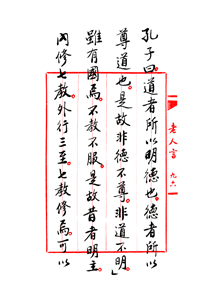 孔子曰。道者所以明德也。德者所以
尊道也。是故非德不尊。非道不明。」
雖有國焉。不教不服。是故昔者明主。
內修七教。外行三至。七教修焉。可以
老人言 九六